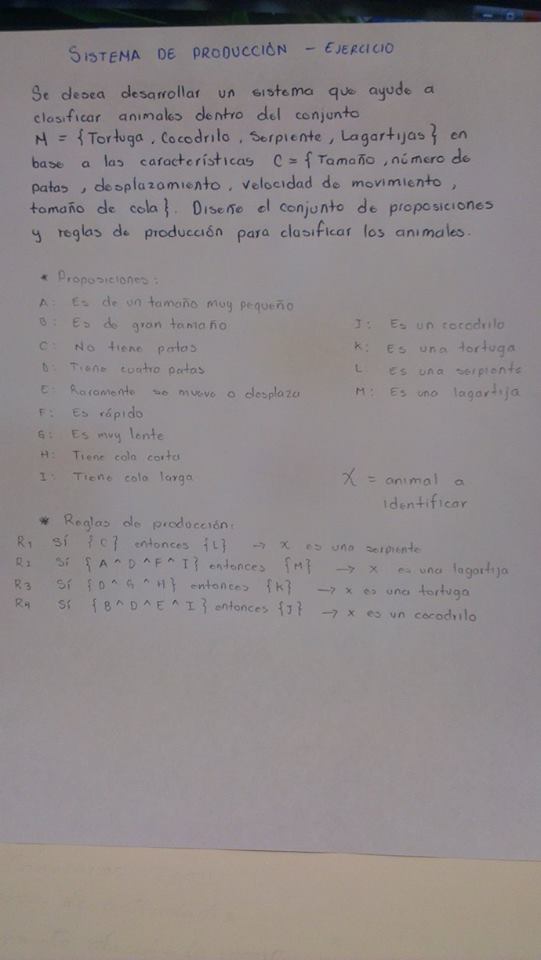 SISTEMA DE PRODUCCIÓN - EJERCICIO
Se desea desarrollar un sistema que ayude a
clasificar animales dentro del conjunto
M = {Tortuga, Cocodrilo, Serpiente, Lagartijas} en
base a las características C = {Tamaño, número de
patas, desplazamiento, velocidad de movimiento,
tamaño de cola}. Diseñe el conjunto de proposiciones
y reglas de producción para clasificar los animales.
* Proposiciones:
A: Es de un tamaño muy pequeño
B: Es de gran tamaño
C: No tiene patas
D: Tiene cuatro patas
E: Raramente se mueve o desplaza
F: Es rápido
G: Es muy lento
H: Tiene cola corta
I: Tiene cola larga
J: Es un cocodrilo
K: Es una tortuga
L: Es una serpiente
M: Es una lagartija
X = animal a
identificar
* Reglas de producción:
R1 Sí {C} entonces {L} → x es una serpiente
R2 Sí {A ^ D ^ F ^ I} entonces {M} → x es una lagartija
R3 Sí {D ^ G ^ H} entonces {K} → x es una tortuga
R4 Sí {B ^ D ^ E ^ I} entonces {J} → x es un cocodrilo